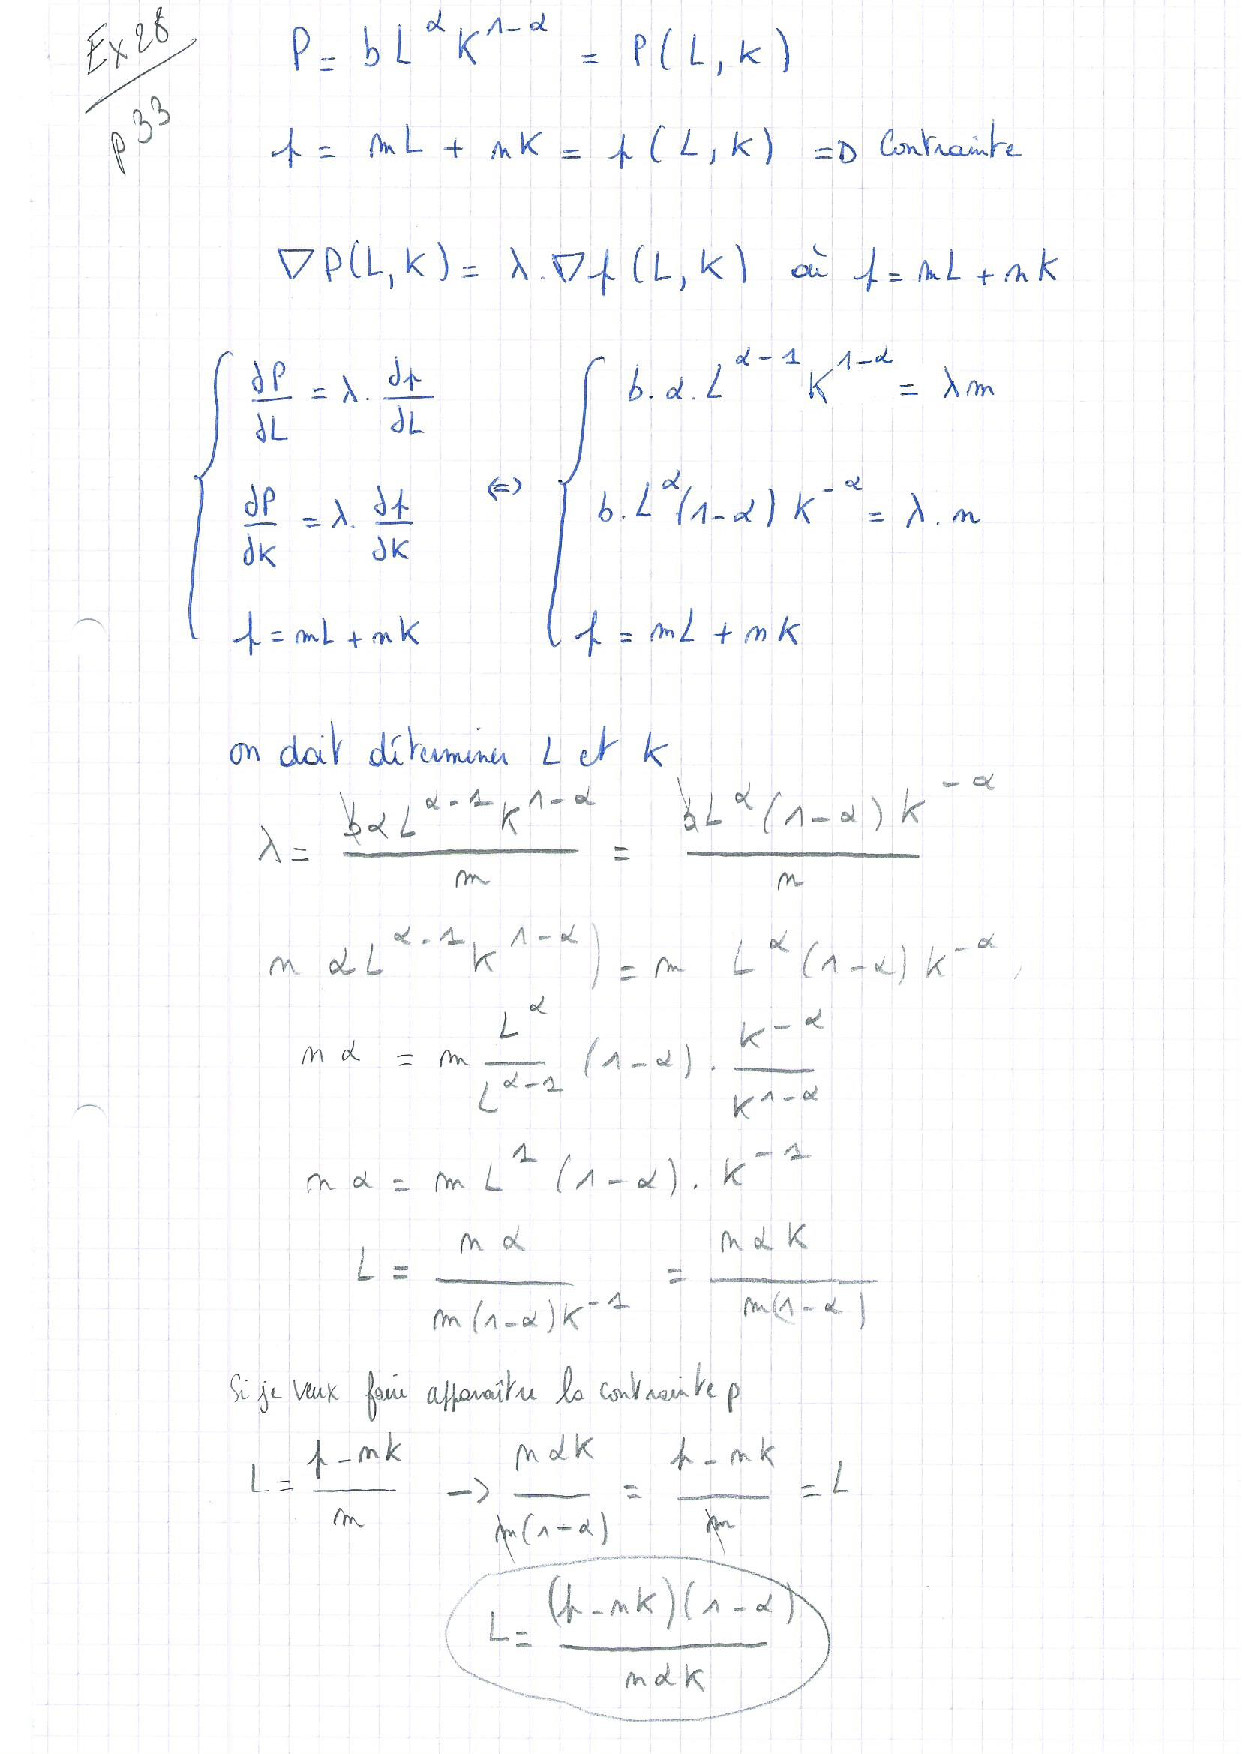 Ex 28
p 33
P = b L^α K^(1-α) = P(L, K)
p = mL + nK = p(L, K) => Contrainte
∇P(L, K) = λ.∇p(L, K) où p = mL + nK
{ ∂P/∂L = λ. ∂p/∂L <=> { b.α.L^(α-1) K^(1-α) = λm
∂P/∂K = λ. ∂p/∂K b.L^α(1-α) K^(-α) = λ.n
p = mL + nK p = mL + nK
on doit déterminer L et K
λ = bαL^(α-1)K^(1-α) / m = bL^α(1-α)K^(-α) / n
n αL^(α-1)K^(1-α)) = m L^α(1-α)K^(-α)
nα = m L^α / L^(α-1) (1-α) . K^(-α) / K^(1-α)
nα = m L^1 (1-α). K^(-1)
L = nα / m(1-α)K^(-1) = nαK / m(1-α)
Si je veux faire apparaître la contrainte p
L = p-nK / m -> nαK / m(1-α) = p-nK / m = L
L = (p-nK)(1-α) / nαK